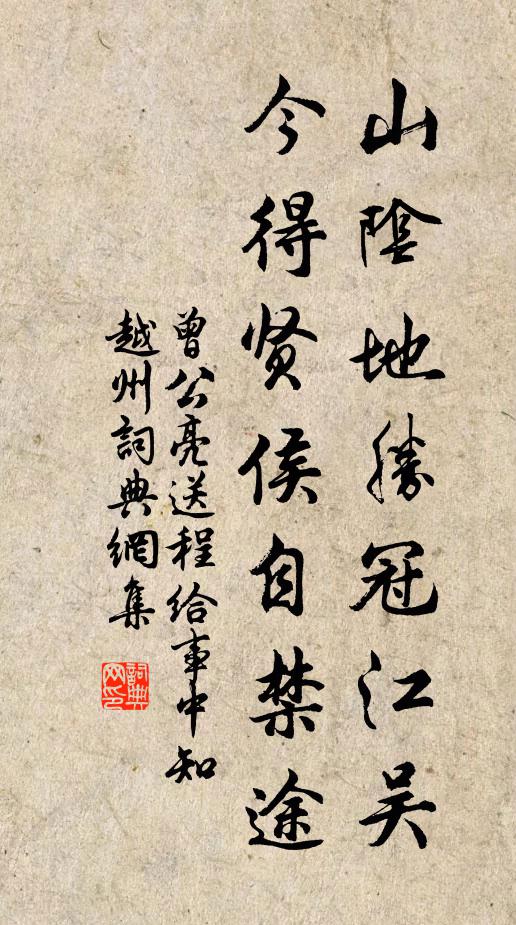 山陰地勝冠江吴
今得贤侯自禁途
曾公亮送程给事中知
越州詞典網集
詞典
网印